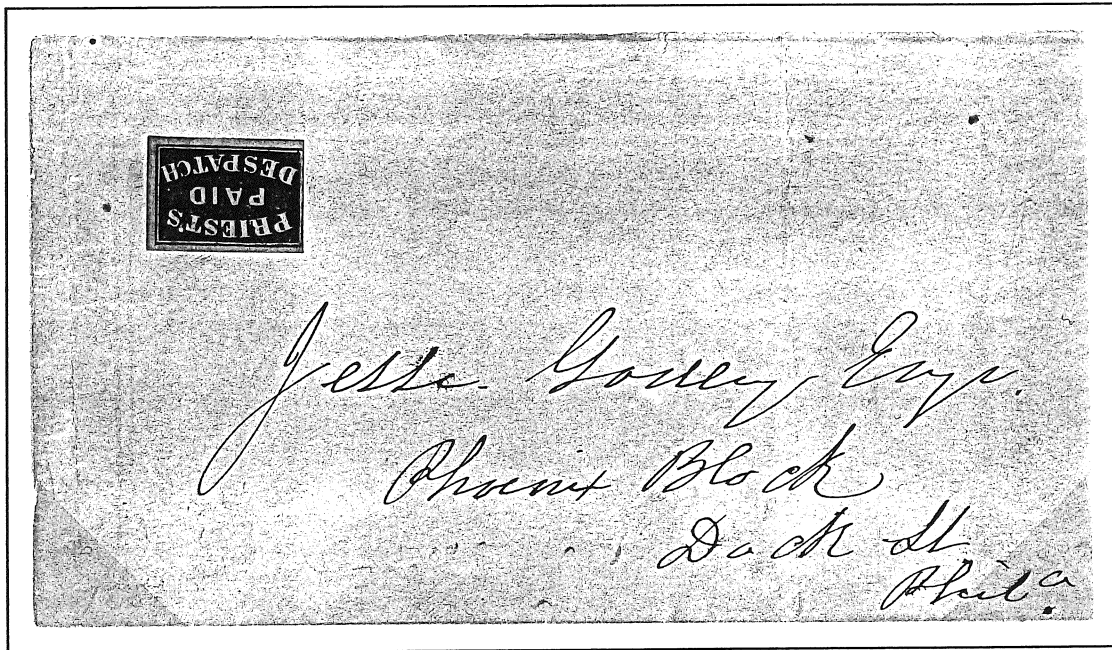 PRIEST'S
PAID
DESPATCH
Jesse Godley Esqr.
Phoenix Block
Dock St
Phila